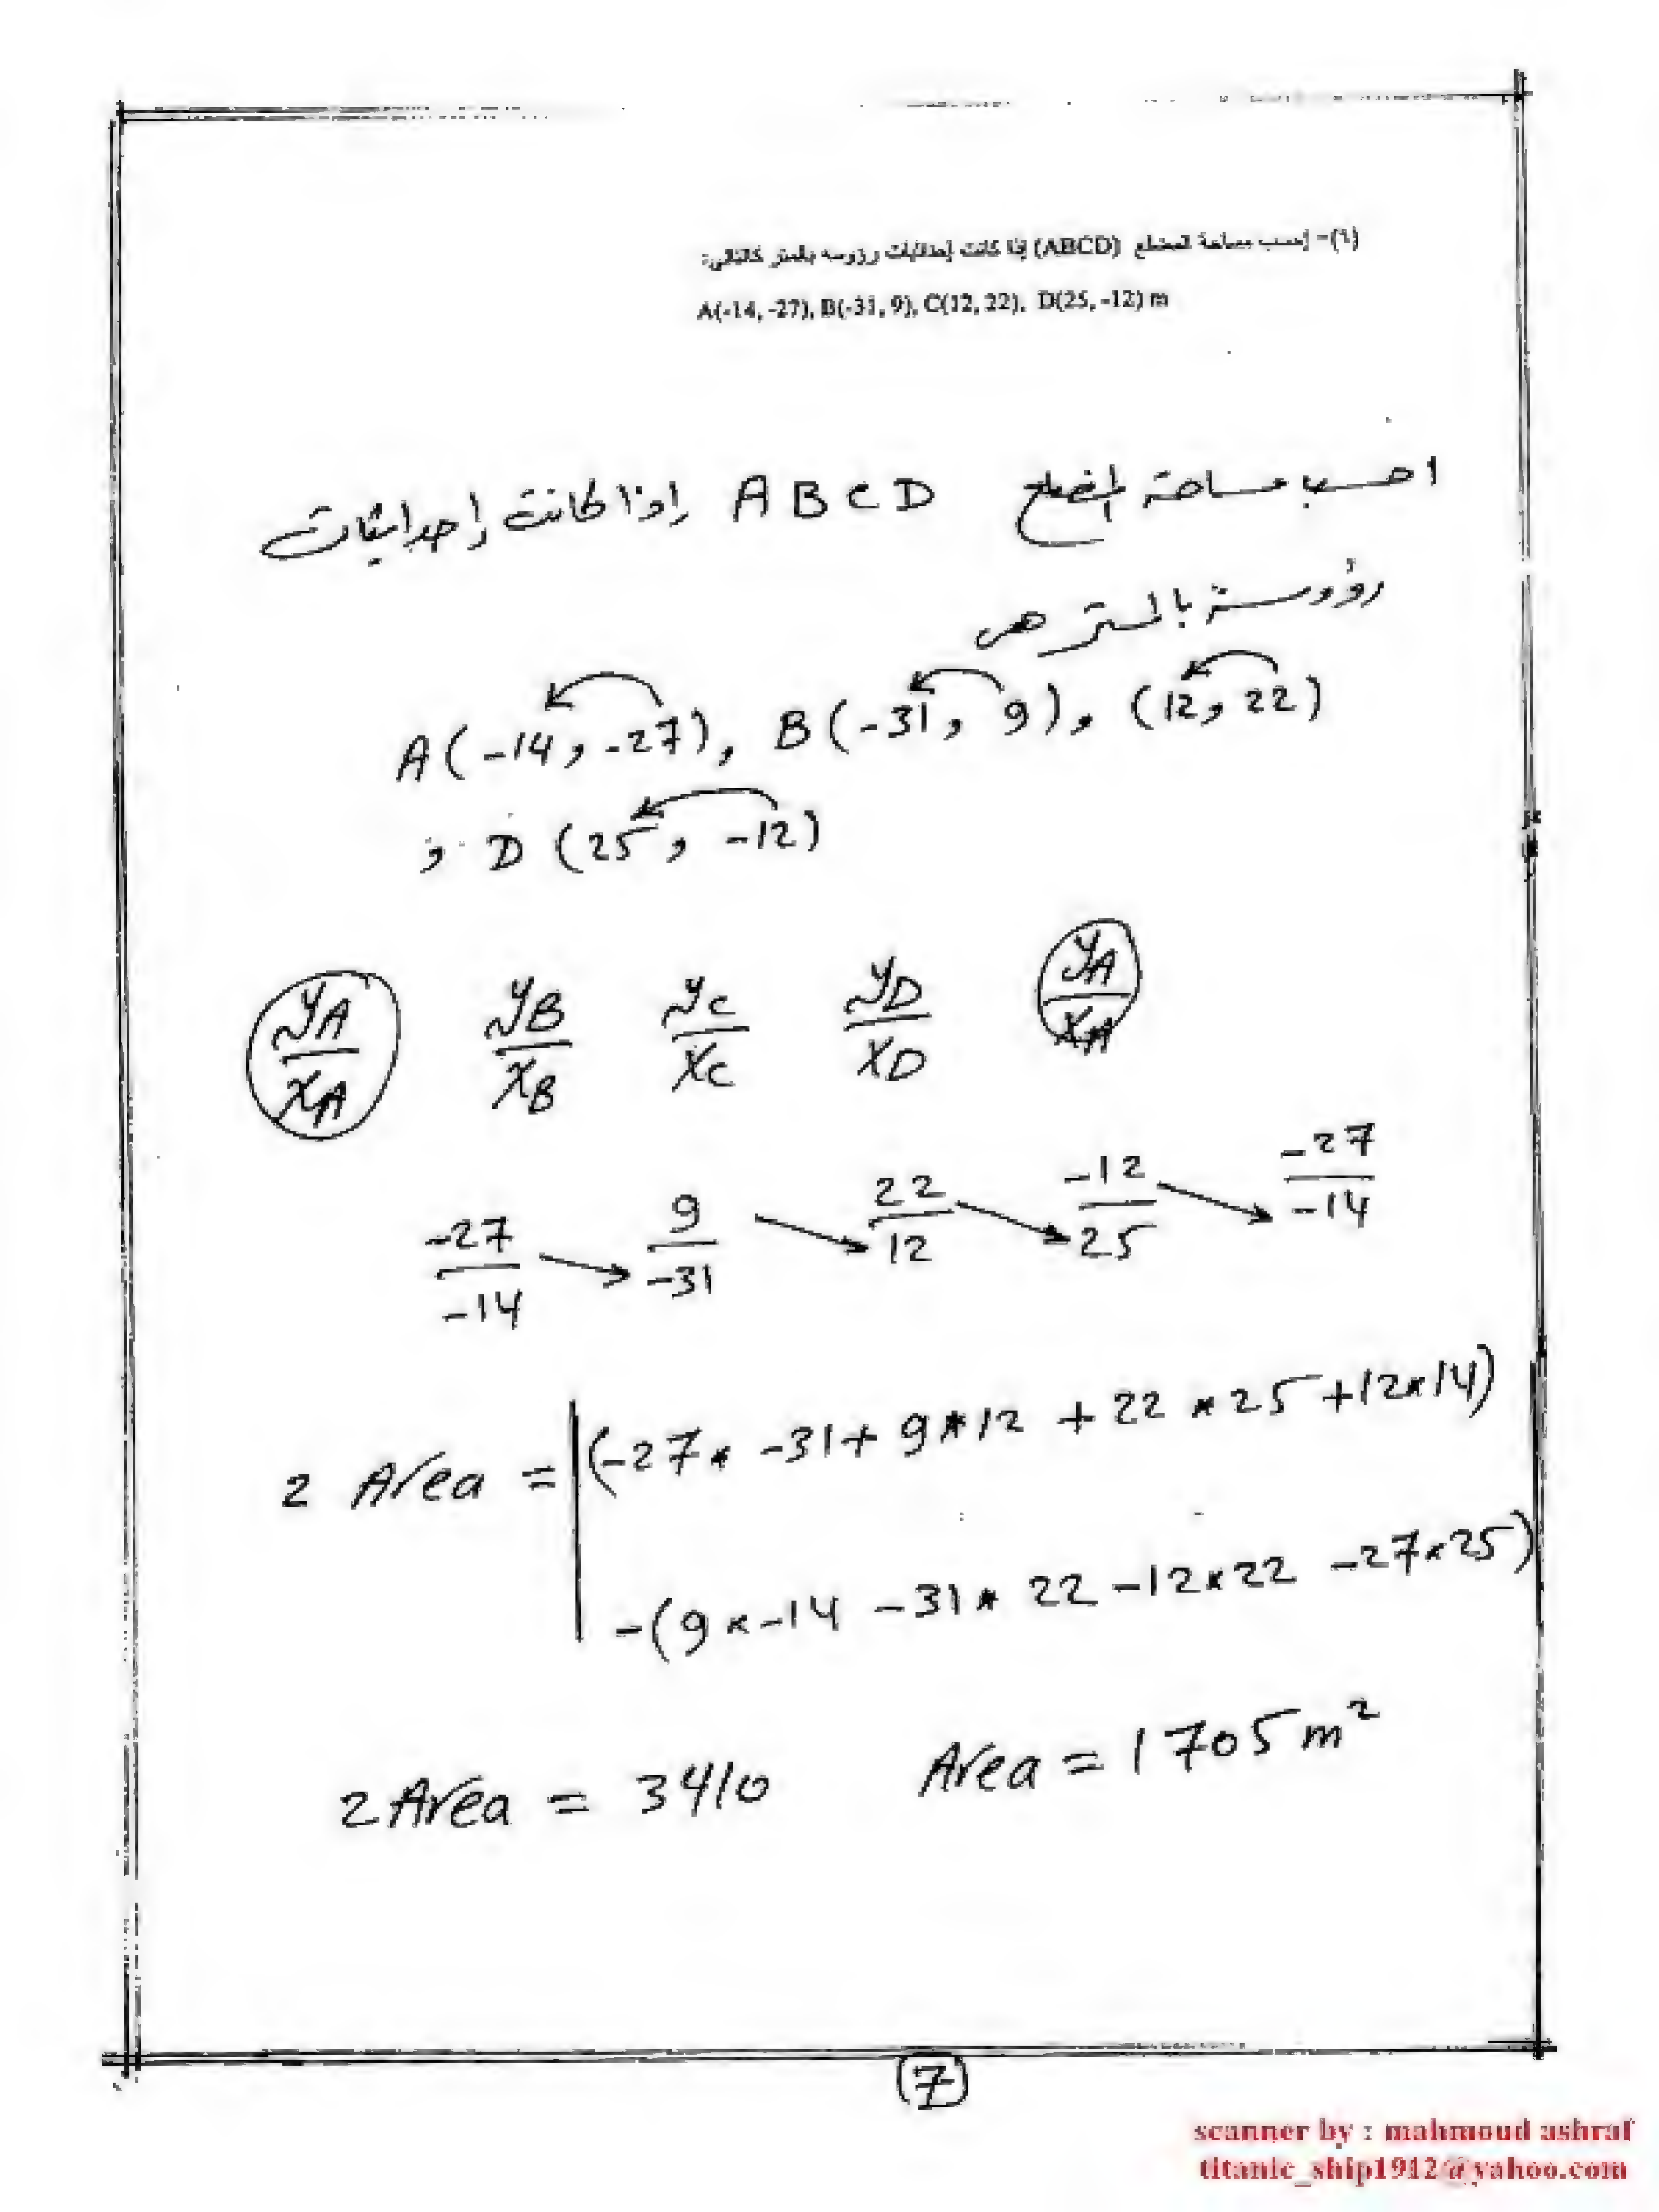 (٦)- إحسب مساحة المضلع (ABCD) إذا كانت إحداثيات رؤوسه بالمتر كالتالي:
A(-14, -27), B(-31, 9), C(12, 22), D(25, -12) m
احسب مساحة المضلع A B C D إذا كانت إحداثيات
رؤوسة بالمتر هى
A(-14, -27), B(-31, 9), (12, 22)
, D (25, -12)
yA/xA yB/xB yC/xC yD/xD yA/xA
-27/-14 9/-31 22/12 -12/25 -27/-14
2 Area = |(-27* -31+ 9*12 + 22*25+12*14)
-(9*-14 -31* 22 -12*22 -27*25)
2 Area = 3410 Area = 1705 m²
(7)
scanner by : mahmoud ashraf
titanic_ship1912@yahoo.com